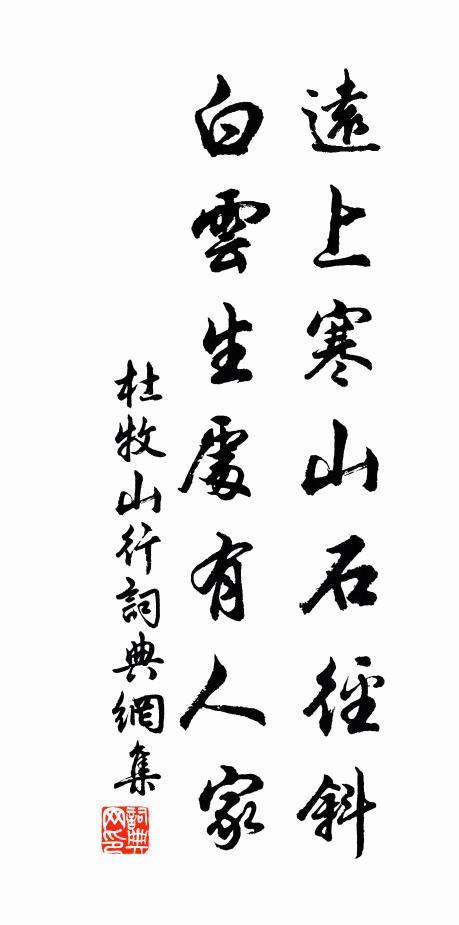 遠上寒山石徑斜
白雲生處有人家
杜牧山行詞典網集
詞典
网印